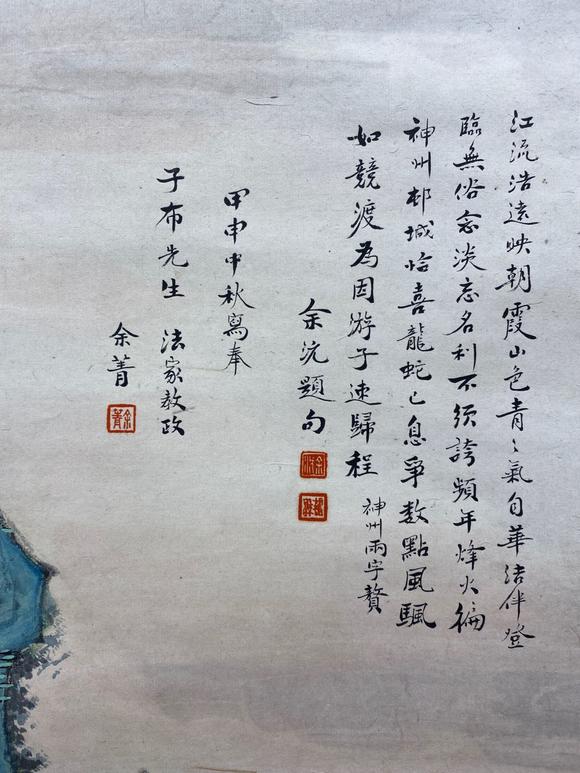 江流浩遠映朝霞山色青〻氣自華結伴登
臨無俗念淡忘名利不須誇頻年烽火徧
神州邨城恰喜龍蛇已息爭數點風颿
如競渡為因游子速歸程
神州兩字贅
余沆題句
甲申中秋寫奉
子布先生 法家教政
余菁